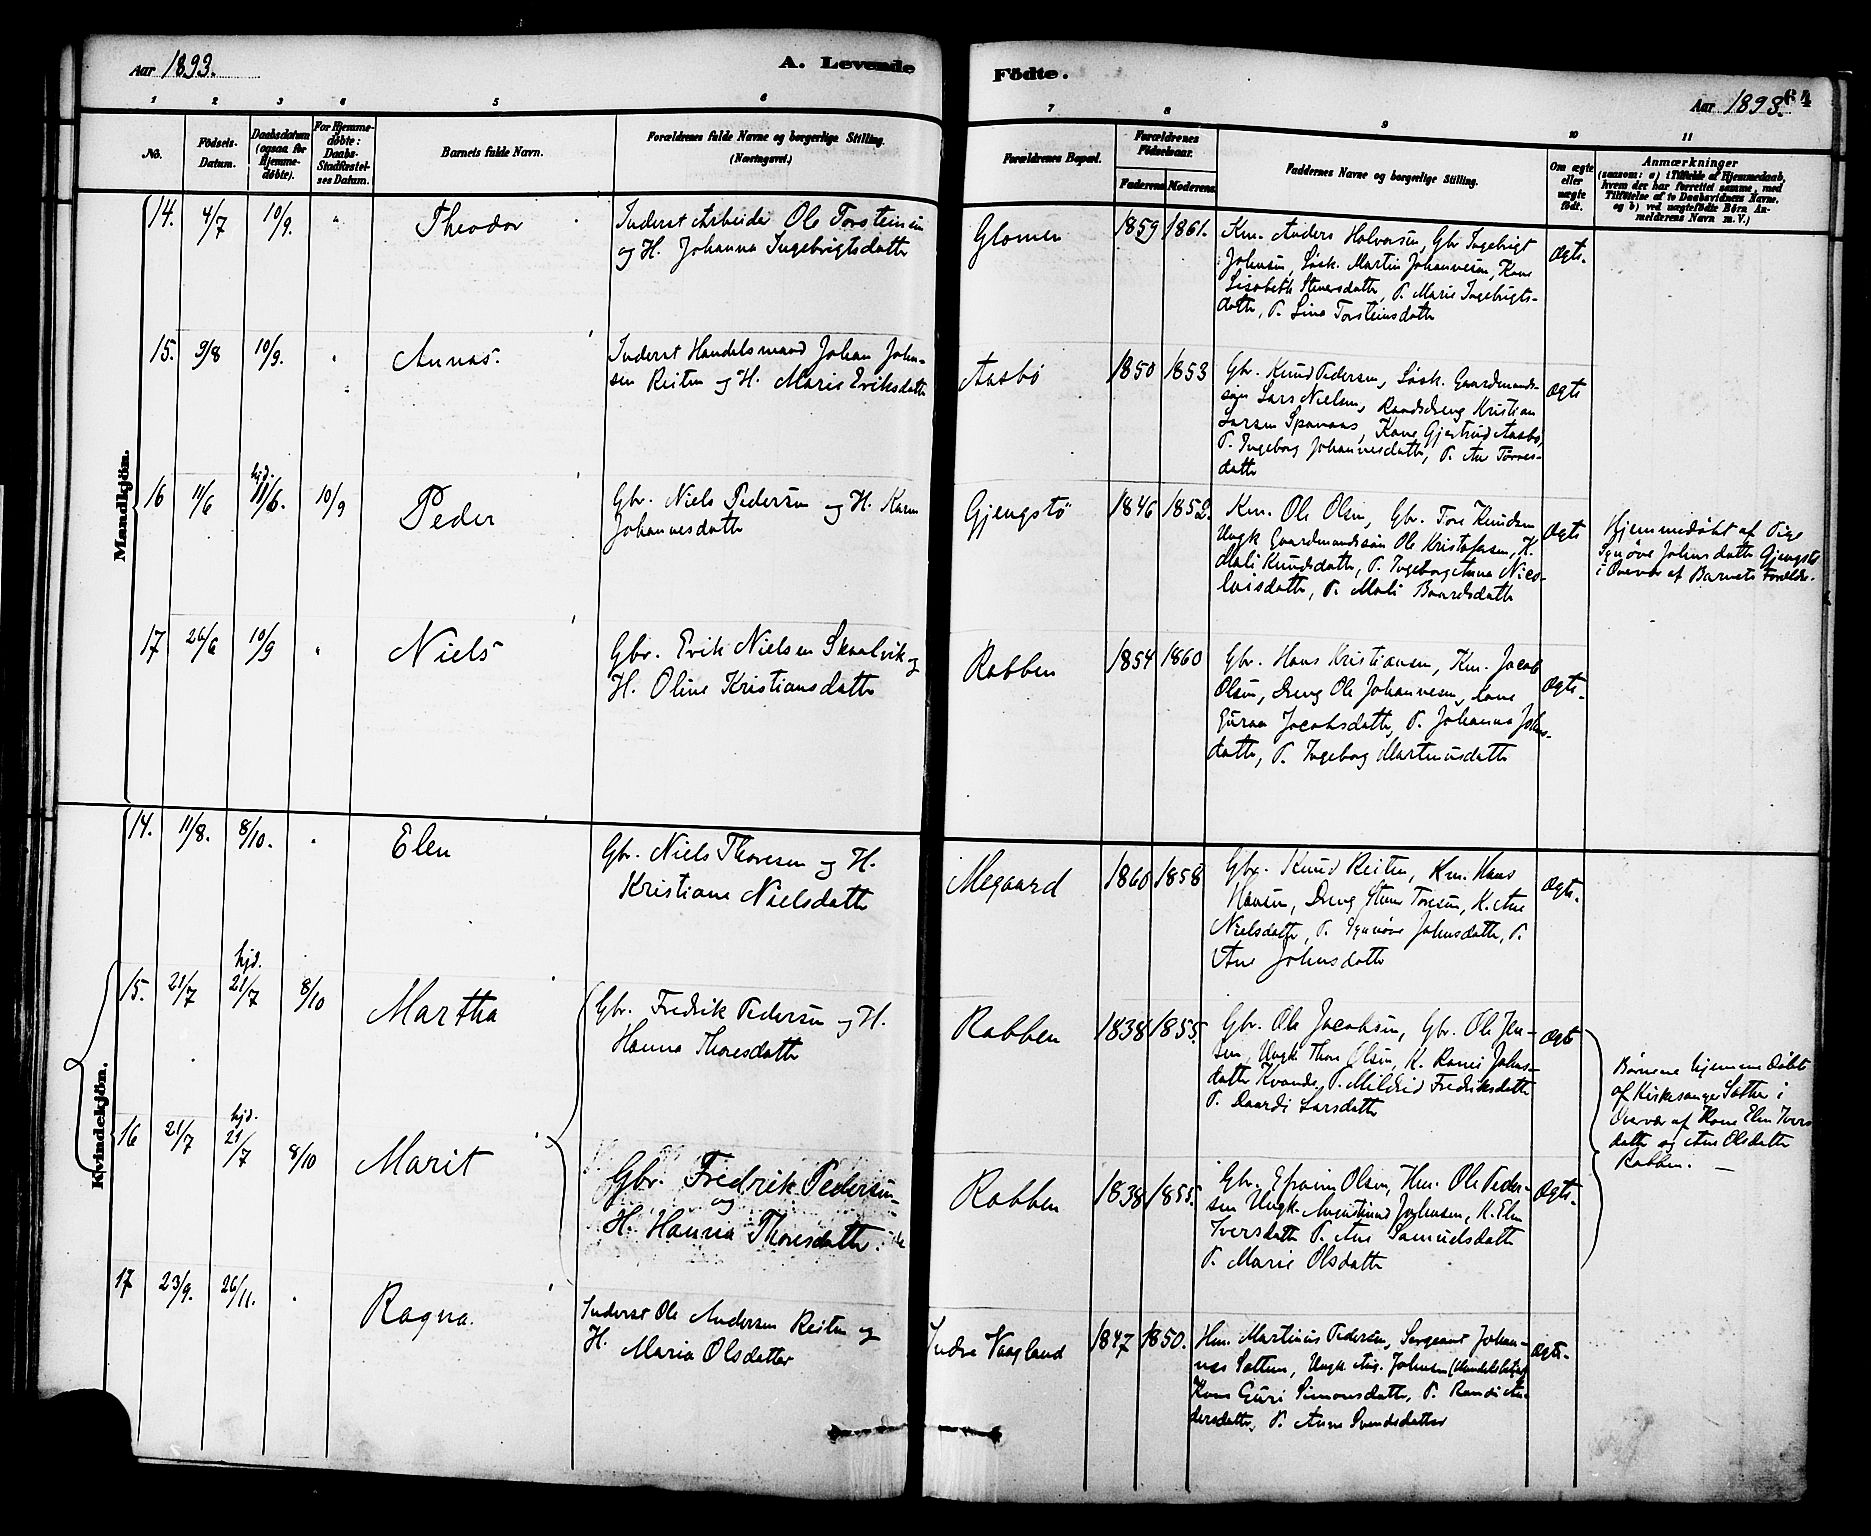 Aar 1893.
A. Levende
Födte.
Aar 1893.
64
1 2 3 4 5 6
7 8 9 10 11
No.
Födsels-
Datum.
Daabsdatum
(ogsaa for
Hjemme-
døbte).
For Hjemme-
døbte:
Daabs-
Stadfæstel-
ses Datum.
Barnets fulde Navn.
Forældrenes fulde Navne og borgerlige Stilling.
(Næringsvei.)
Forældrenes Bopæl.
Forældrenes
Födselsaar.
Faderens Moderens
Faddernes Navne og borgerlige Stilling.
Om ægte
eller
uægte
født.
Anmærkninger
(saasom: a) i Tilfælde af Hjemmedaab,
hvem der har forrettet samme, med
Tilföielse af to Daabsvidners Navne,
og b) ved uægtefødte Börn An-
melderens Navn m. V.)
Mandkjön.
14. 4/7 10/9. " Theodor
Inderst Arbeider Ole Torsteinsen
og H. Johanna Ingebrigtsdatter
Glomen 1859 1861.
Km. Anders Halvorsen, Gbr Ingebrigt
Johnsen, Løsk. Martin Johannesen, Kone
Lisabeth Steversdatter, P. Marie Ingebrigts-
datter, P. Lina Torsteinsdatter
Ægte.
15. 9/8 10/9. " Annas.
Inderst Handelsmand Johan John-
sen Reiten og H. Marie Eriksdatter
Aasbø 1850 1853
Gbr. Knud Pedersen, Løsk. Gaardmands-
søn Lars Nielsen, Baadsdreng Kristian
Larsen Spanaas, Kone Gjertrud Aasbø,
P. Ingeborg Johannesdatter, P. Ane Tørres-
datter
Ægte
16 11/6 hjd. 11/6. 10/9 Peder
Gbr. Niels Pedersen og H. Karen
Johannesdatter
Gjengstø 1846 1852.
Km. Ole Olsen, Gbr. Tore Knudsen
Ungk Gaardmandssøn Ole Kristofersen, K.
Mali Knudsdatter, P. Ingeborg Anna Nico-
laisdatter, P. Mali Baardsdatter
Ægte
Hjemmedøbt af Pige
Synøve Johnsdatter Gjengstø
i Overvær af Barnets Forældre.
17 26/6 10/9 " Niels
Gbr. Erik Nielsen Skaalvik og
H. Oline Kristiansdatter
Rabben 1854 1860
Gbr. Hans Kristiansen, Km. Jacob
Olsen, Dreng Ole Johannesen, Kone
Guraa Jacobsdatter, P. Johanna Johns-
datter, P. Ingeborg Martinusdatter
Ægte.
Kvindekjön.
14. 11/8. 8/10. " Elen
Gbr. Niels Thoresen og H.
Kristiane Nielsdatter
Megaard 1860 1858
Gbr. Knud Reiten, Km. Hans
Hansen, Dreng Sten Toresen, K. Ane
Nielsdatter, P. Synnøve Johnsdatter, P.
Ane Johnsdatter
Ægte.
15. 21/7 hjd. 21/7 8/10 Martha
Gbr. Fredrik Pedersen og H.
Hanna Thoresdatter
Rabben 1838 1855.
Gbr. Ole Jacobsen, Gbr. Ole Jen-
sen, Ungk Thore Olsen, K. Randi Johns-
datter Kvande, P. Mildrid Fredriksdatter
P. Daardi Larsdatter
Ægte
Børnene hjemmedøbt
af Kirkesanger Sather i
Overvær af Kone Elen Ivers
datter og Ane Olsdatter
Rabben. —
16 21/7 hjd. 21/7 8/10 Marit
Gbr. Fredrik Pedersen
og
H. Hanna Thoresdatter.
Rabben 1838 1855.
Gbr. Efraim Olsen, Hm. Ole Peder-
sen Ungk. Johnsen, K. Elen
Iversdatter P. Ane Samuelsdatter
P. Marie Olsdatter
Ægte.
17 23/9. 26/11. " Ragna.
Inderst Ole Andersen Reiten og
H. Maria Olsdatter
Indre Vaagland 1847 1850.
Hm. Martinus Pedersen, Sergeant Johan-
nes Sættem, Ungk Aug. Johnsen (Handelsbetj.)
Kone Guri Simonsdatter, P. Randi An-
dersdatter, P. Anne Svendsdatter
Ægte.